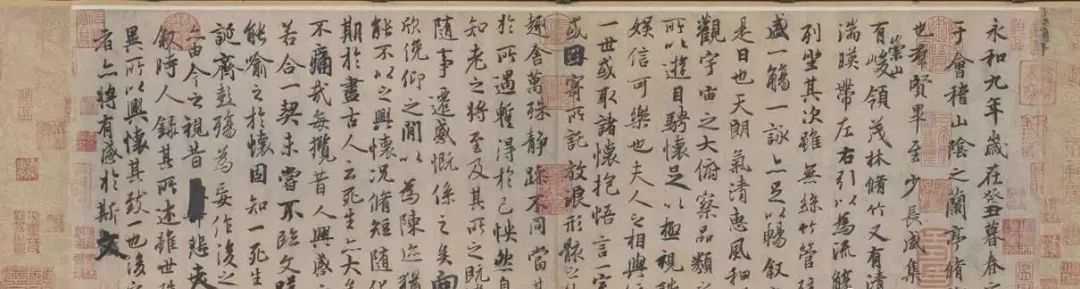 永和九年歲在癸丑暮春之
于會稽山陰之蘭亭脩
也群賢畢至少長咸集
有崇山峻領茂林脩竹又有清
湍暎帶左右引以為流觴
列坐其次雖無絲竹管
盛一觴一詠亦足以暢敘
是日也天朗氣清惠風和
觀宇宙之大俯察品類之
所以遊目騁懷足以極視
娛信可樂也夫人之相與
一世或取諸懷抱悟言一室
或因寄所託放浪形骸之
趣舍萬殊靜躁不同當其
於所遇蹔得於己怏然自
知老之將至及其所之既
隨事遷感慨係之矣向
欣俛仰之閒以為陳迹猶
能不以之興懷況脩短隨化
期於盡古人云死生亦大
不痛哉每攬昔人興感之
若合一契未嘗不臨文嗟
能喻之於懷固知一死生
誕齊彭殤為妄作後之
亦由今之視昔悲夫
敘時人錄其所述雖世殊
異所以興懷其致一也後之
者亦將有感於斯文